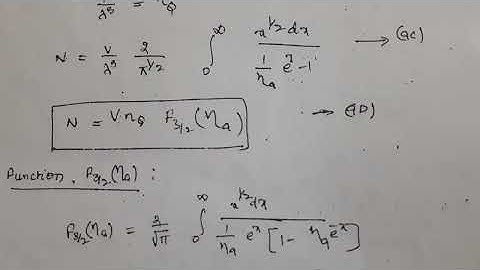 1/λ³ = n_Q
N = V/λ³ 2/π^1/2 ∫₀^∞ x^1/2 dx / (1/η_a e^x - 1) → (9C)
N = V n_Q F_3/2 (η_a) → (9D)
Function, F_3/2(η_a) :
F_3/2(η_a) = 2/√π ∫₀^∞ x^1/2 dx / (1/η_a e^x [1 - η_a e^-x])